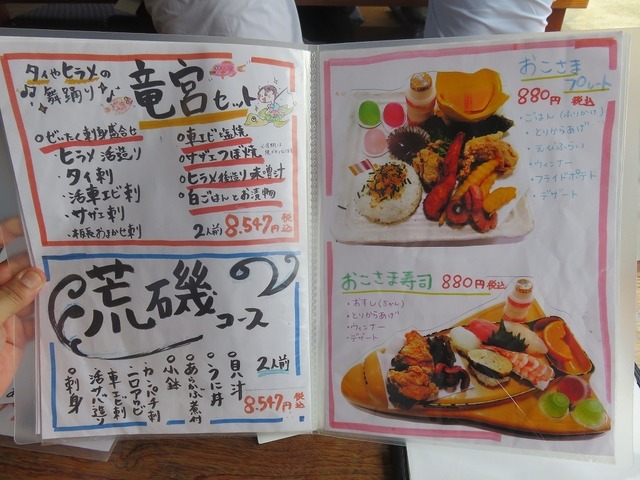 タイやヒラメの
舞踊り
竜宮セット
ぜいたく刺身盛合せ
ヒラメ活造り
タイ刺
活車エビ刺
サザエ刺
板長おまかせ刺
車エビ塩焼
サザエつぼ焼
ヒラメ後造り味噌汁
白ごはんとお漬物
2人前 8.547円 税込
荒磯コース
2人前
貝汁
うに丼
あらかぶ煮付
小鉢
カンパチ刺
ニロアワビ
車エビ刺
活ハス造り
刺身
8.547円 税込
おこさま
プレート
880円 税込
・ごはん (ふりかけ)
・とりからあげ
・えびふらい
・ウィンナー
・フライドポテト
・デザート
おこさま寿司 880円税込
・おすし(5かん)
・とりからあげ
・ウィンナー
・デザート